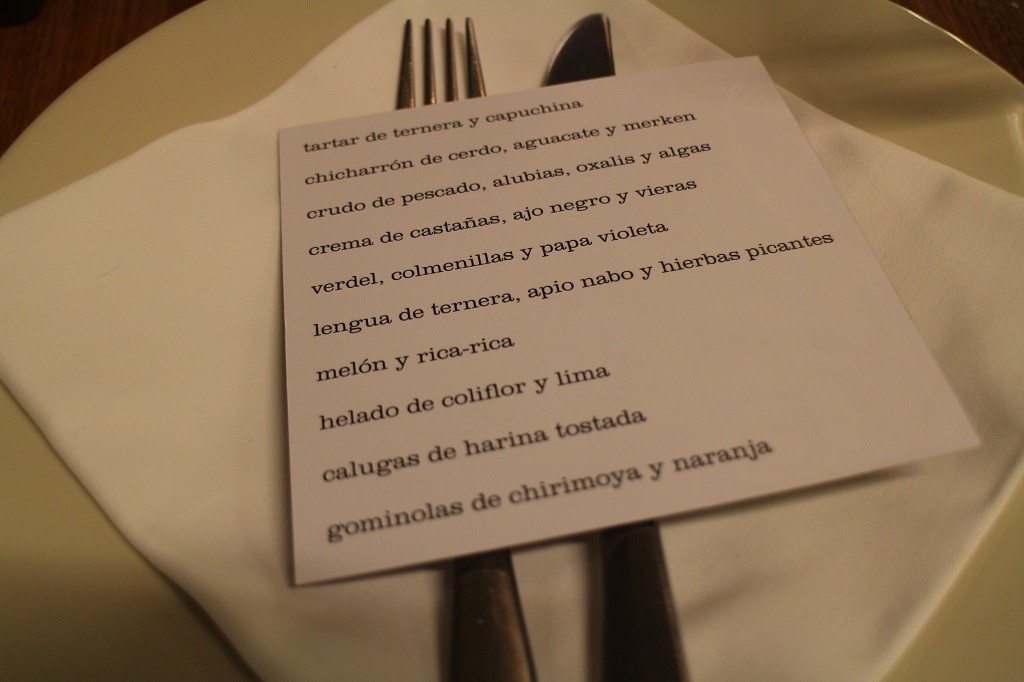 tartar de ternera y capuchina
chicharrón de cerdo, aguacate y merken
crudo de pescado, alubias, oxalis y algas
crema de castañas, ajo negro y vieras
verdel, colmenillas y papa violeta
lengua de ternera, apio nabo y hierbas picantes
melón y rica-rica
helado de coliflor y lima
calugas de harina tostada
gominolas de chirimoya y naranja